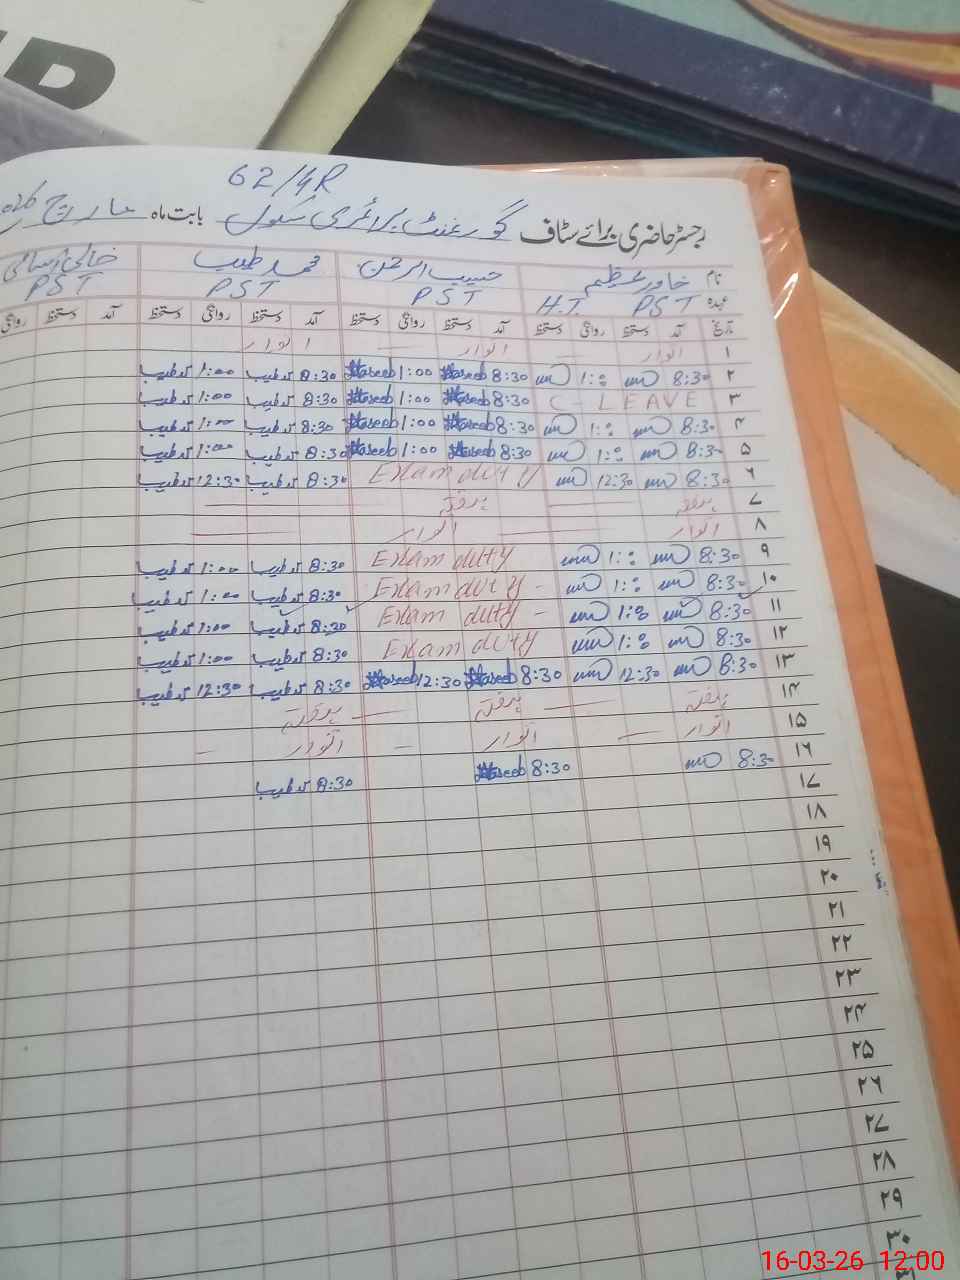 62/4R
رجسٹر حاضری برائے سٹاف گورنمنٹ پرائمری سکول بابت ماہ مارچ
نام خاور عظیم حبیب الرحمن محمد طیب خالی اسامی
عہدہ PST H.T. PST PST PST
تاریخ آمد دستخط روانگی دستخط آمد دستخط روانگی دستخط آمد دستخط روانگی دستخط آمد دستخط روانگی
۱ اتوار — اتوار — اتوار
۲ 8:30 1:00 8:30 Haseeb 1:00 Haseeb 8:30 طیب 1:00 طیب
۳ C-LEAVE 8:30 Haseeb 1:00 Haseeb 8:30 طیب 1:00 طیب
۴ 8:30 1:00 8:30 Haseeb 1:00 Haseeb 8:30 طیب 1:00 طیب
۵ 8:30 1:00 8:30 Haseeb 1:00 Haseeb 8:30 طیب 1:00 طیب
۶ 8:30 12:30 Exam duty 8:30 طیب 12:30 طیب
۷ ہفتہ — ہفتہ —
۸ اتوار — اتوار —
۹ 8:30 1:00 Exam duty 8:30 طیب 1:00 طیب
۱۰ 8:30 1:00 Exam duty - 8:30 طیب 1:00 طیب
۱۱ 8:30 1:00 Exam duty - 8:30 طیب 1:00 طیب
۱۲ 8:30 1:00 Exam duty 8:30 طیب 1:00 طیب
۱۳ 8:30 12:30 8:30 Haseeb 12:30 Haseeb 8:30 طیب 12:30 طیب
۱۴ ہفتہ — ہفتہ — ہفتہ
۱۵ اتوار — اتوار — اتوار —
۱۶ 8:30 8:30 Haseeb 8:30 طیب
۱۷
۱۸
۱۹
۲۰
۲۱
۲۲
۲۳
۲۴
۲۵
۲۶
۲۷
۲۸
۲۹
۳۰
۳۱
16-03-26 12:00